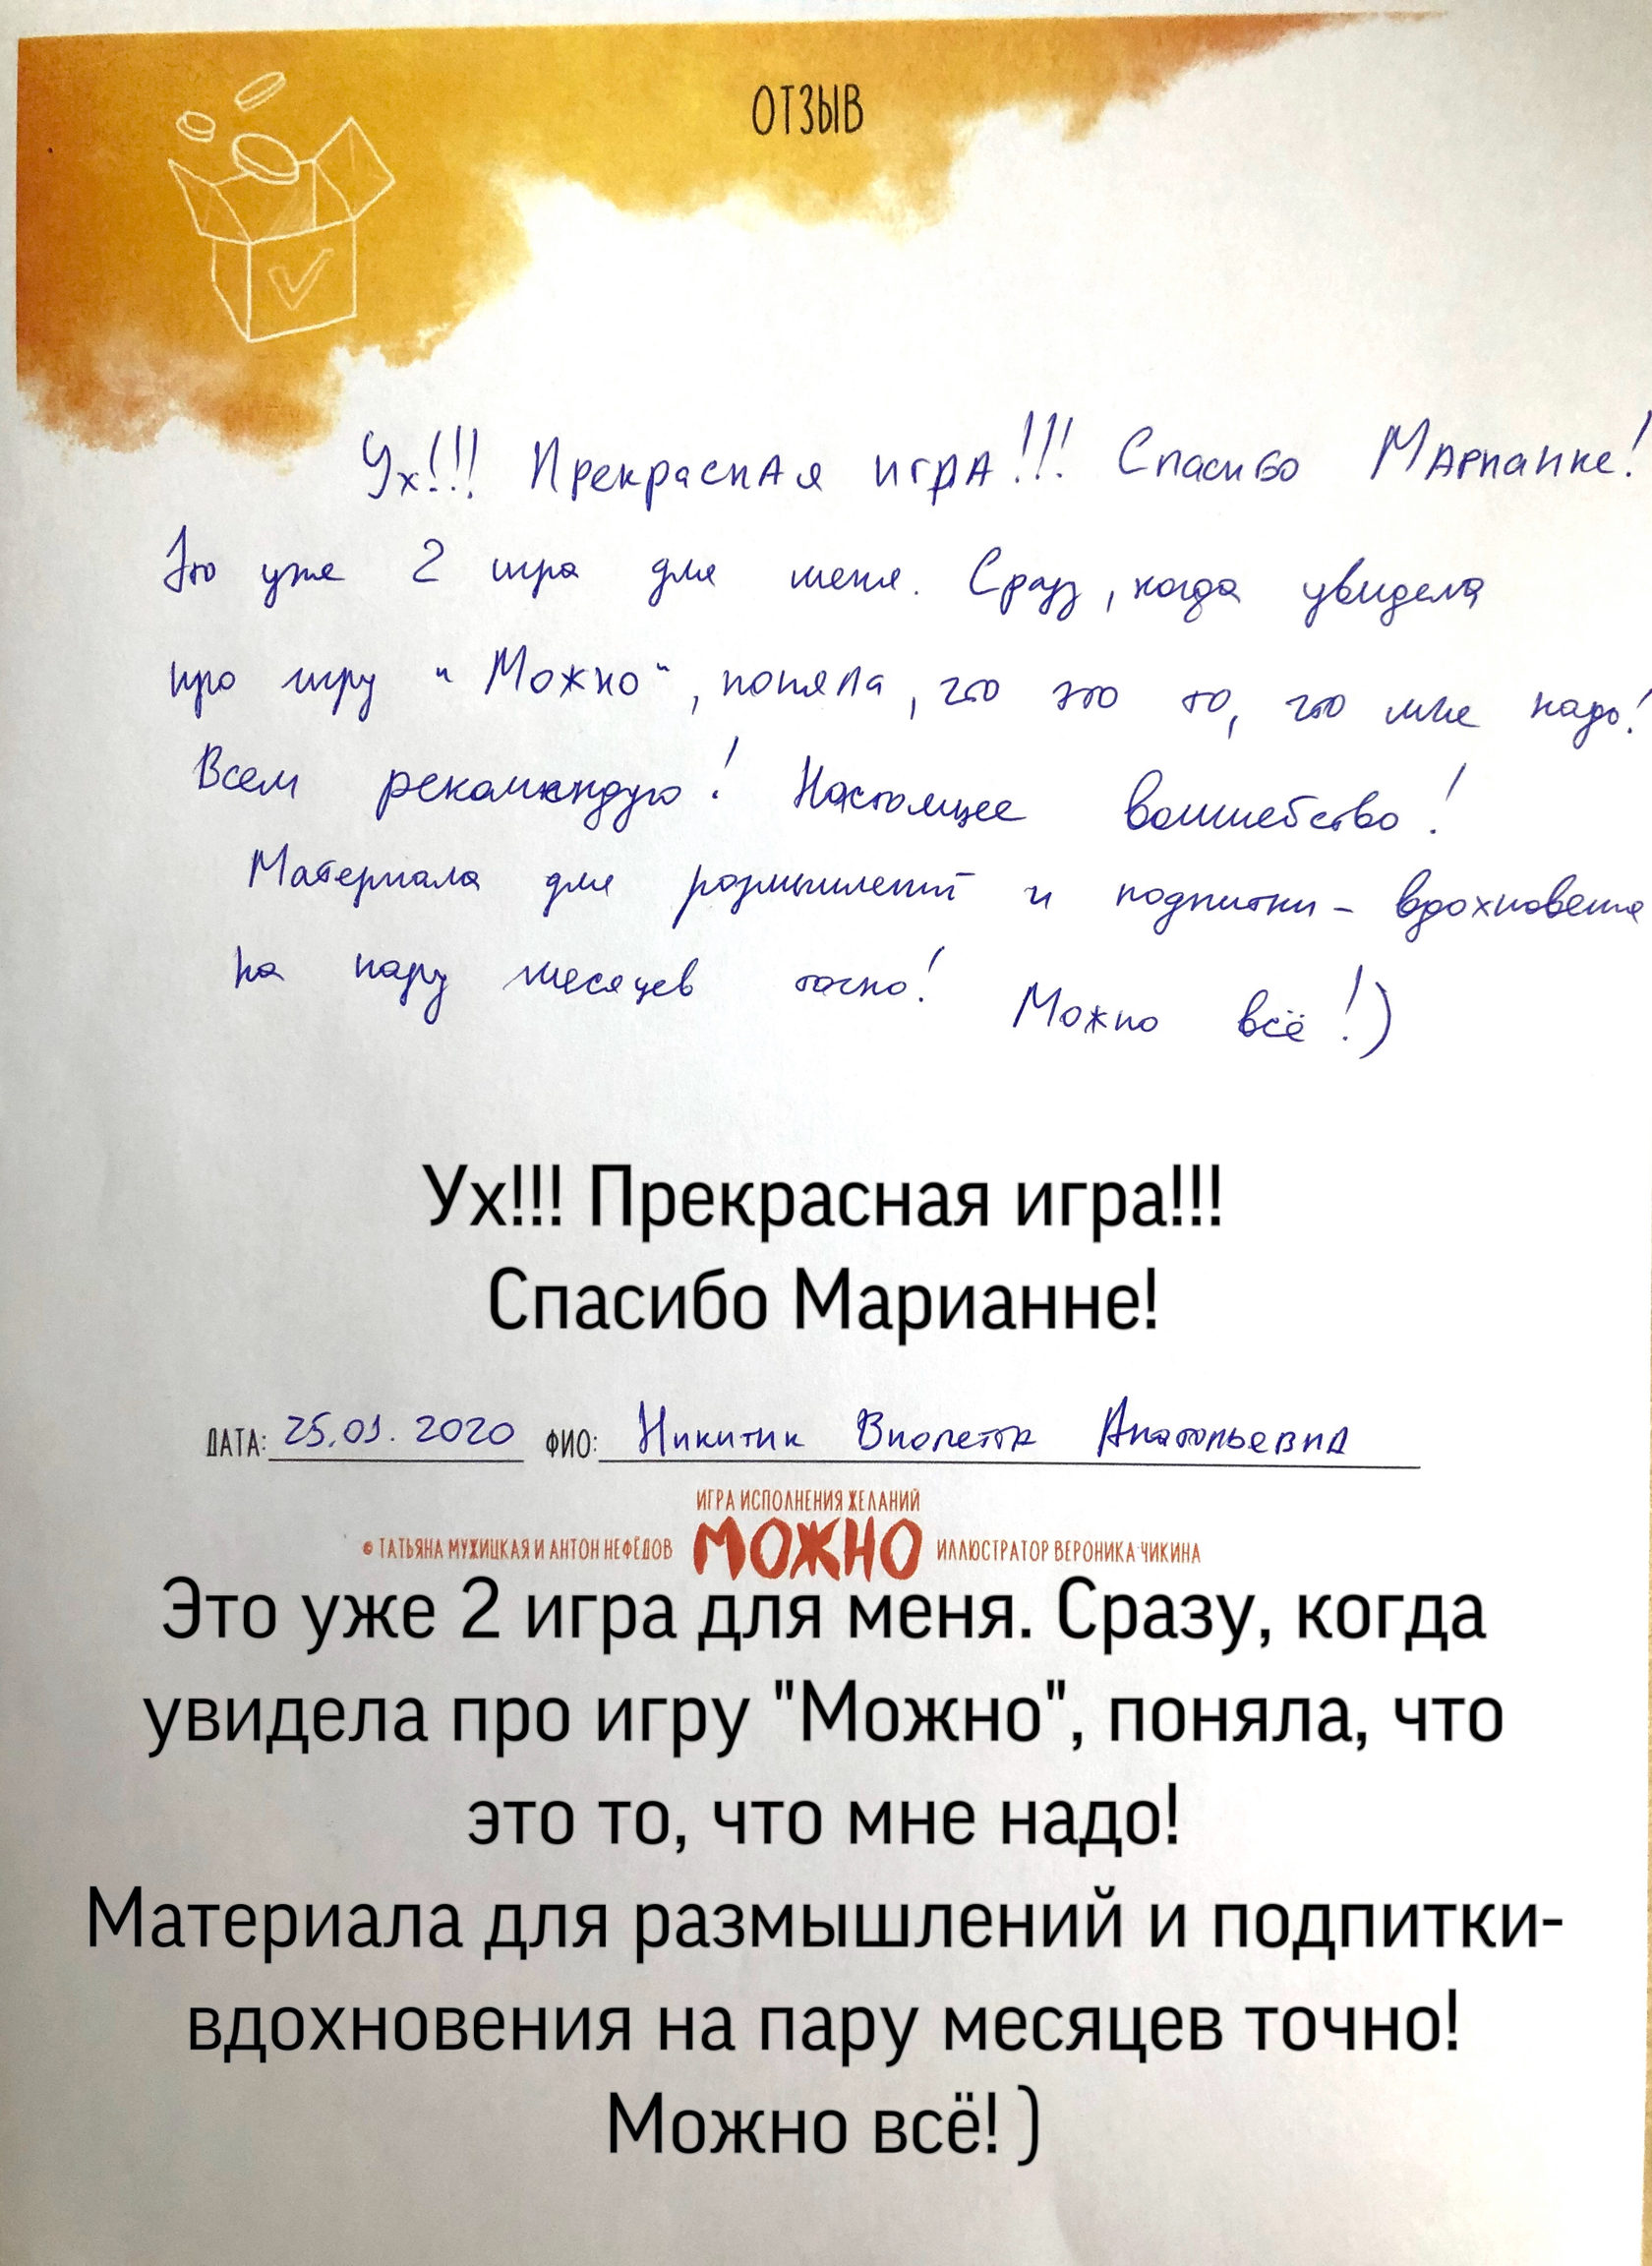 ОТЗЫВ
Ух!!! Прекрасная игра!!! Спасибо Марианне!
Это уже 2 игра для меня. Сразу, когда увидела
про игру "Можно", поняла, что это то, что мне надо!
Всем рекомендую! Настоящее волшебство!
Материала для размышлений и подпитки - вдохновения
на пару месяцев точно! Можно всё!)
Ух!!! Прекрасная игра!!!
Спасибо Марианне!
ДАТА: 25.01.2020 ФИО: Никитик Виолетта Анатольевна
ИГРА ИСПОЛНЕНИЯ ЖЕЛАНИЙ
© ТАТЬЯНА МУЖИЦКАЯ И АНТОН НЕФЁДОВ МОЖНО ИЛЛЮСТРАТОР ВЕРОНИКА ЧИКИНА
Это уже 2 игра для меня. Сразу, когда
увидела про игру "Можно", поняла, что
это то, что мне надо!
Материала для размышлений и подпитки-
вдохновения на пару месяцев точно!
Можно всё! )